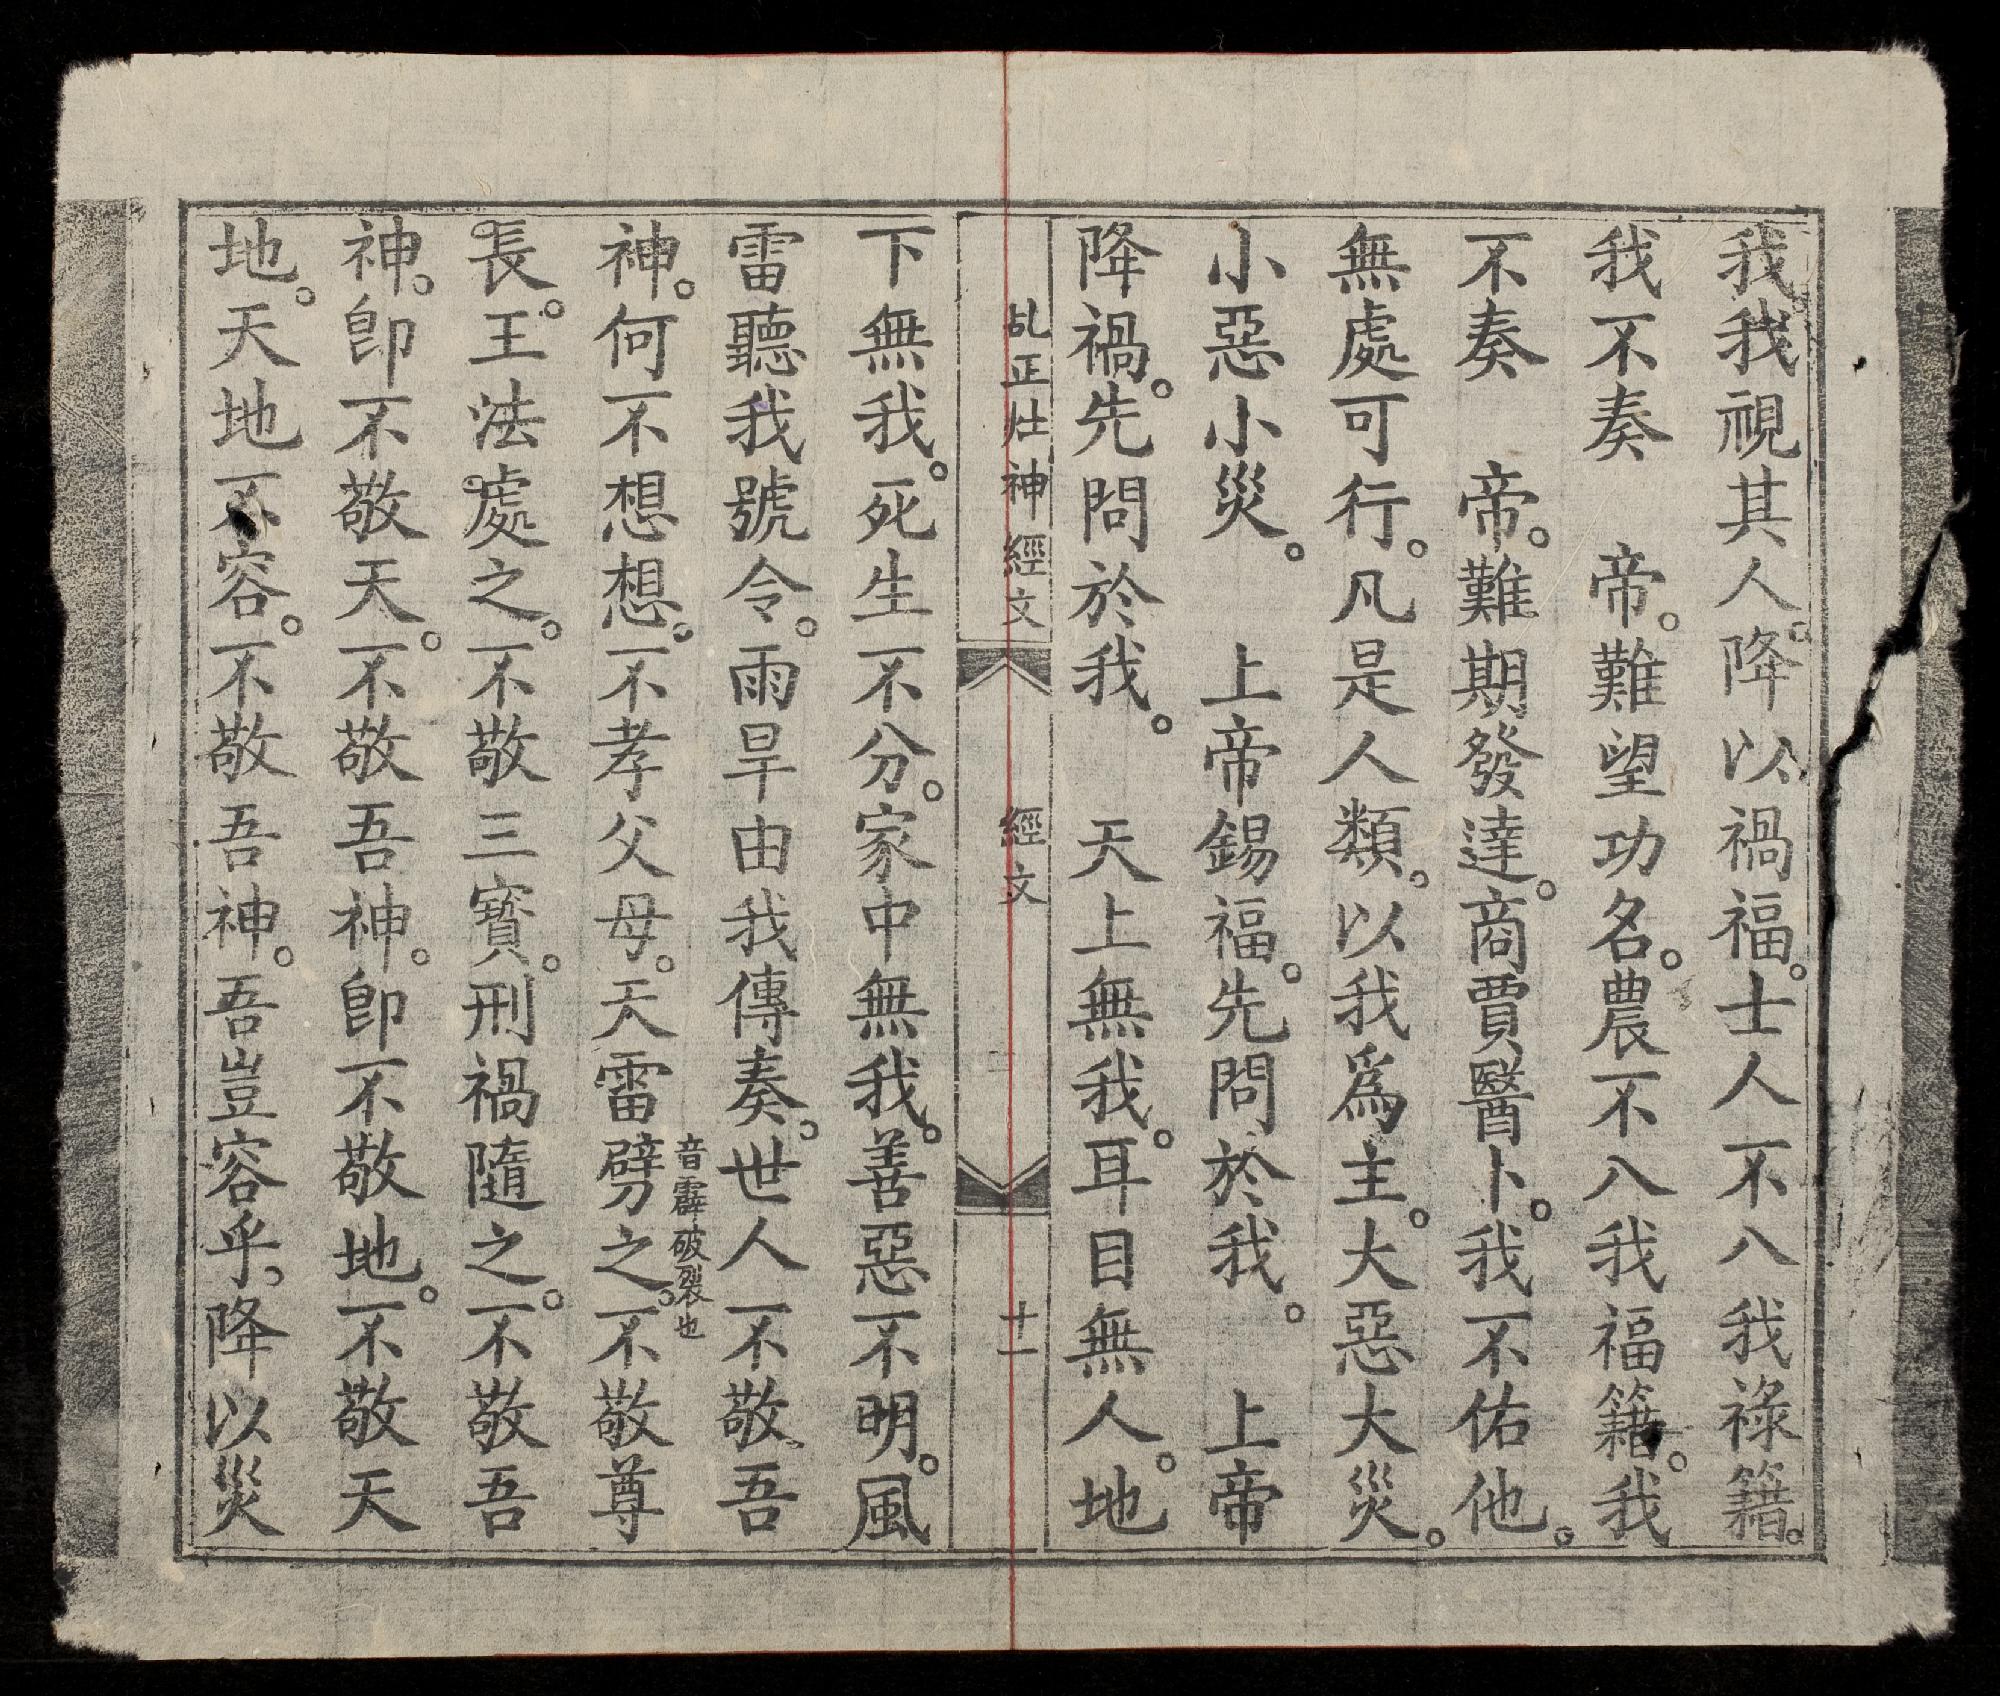 我。我視其人。降以禍福。士人不入我祿籍。
我不奏　帝。難望功名。農不入我福籍。我
不奏　帝。難期發達。商賈醫卜。我不佑他。
無處可行。凡是人類。以我爲主。大惡大災。
小惡小災。　上帝錫福。先問於我。　上帝
降禍。先問於我。　天上無我。耳目無人。地
乩正灶神經文　經文　十一
下無我。死生不分。家中無我。善惡不明。風
雷聽我號令。雨旱由我傳奏。世人不敬吾
神。何不想想。不孝父母。天雷劈之。不敬尊
音霹破裂也
長。王法處之。不敬三寶。刑禍隨之。不敬吾
神。卽不敬天。不敬吾神。卽不敬地。不敬天
地。天地不容。不敬吾神。吾豈容乎。降以災